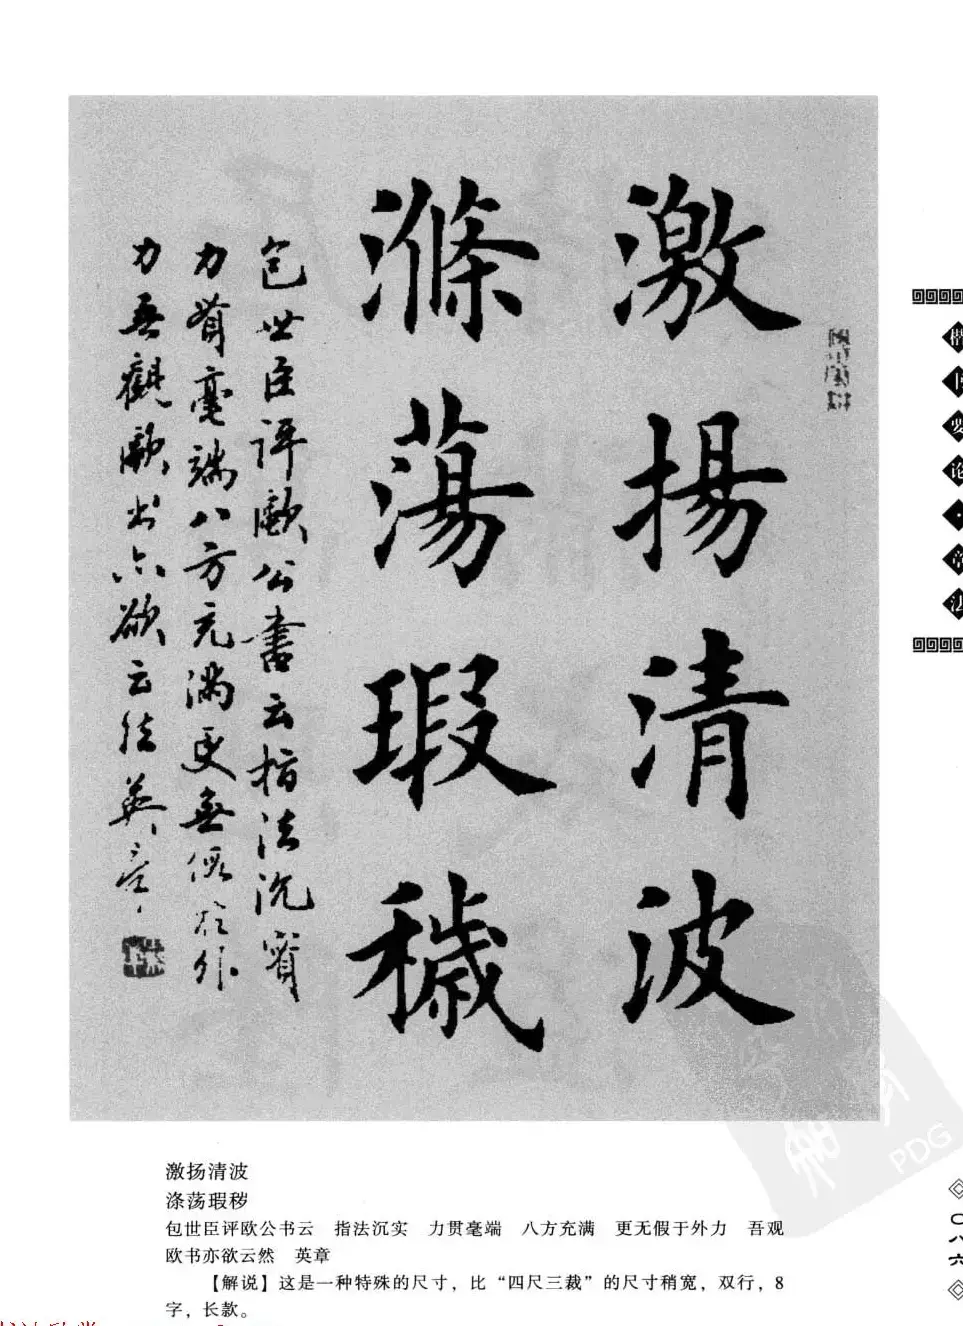 激揚清波
滌蕩瑕穢
包世臣評歐公書云指法沉實
力貫毫端八方充滿更無假於外
力吾觀歐书亦欲云然英章
楷书要论·章法
激扬清波
涤荡瑕秽
包世臣评欧公书云　指法沉实　力贯毫端　八方充满　更无假于外力　吾观
欧书亦欲云然　英章
【解说】这是一种特殊的尺寸，比“四尺三裁”的尺寸稍宽，双行，8
字，长款。
〇八六
PDG